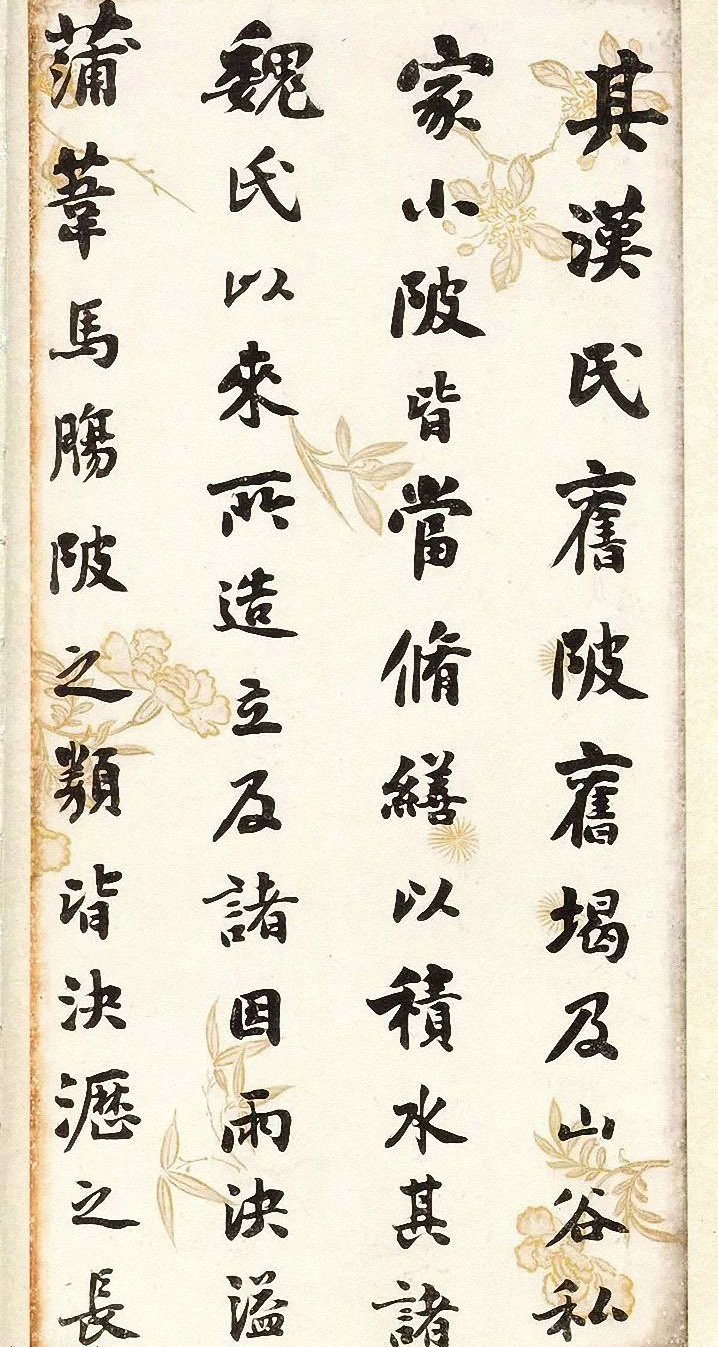 其漢氏舊陂舊堨及山谷私
家小陂皆當脩繕以積水其諸
魏氏以來所造立及諸因雨決溢
蒲葦馬腸陂之類皆決瀝之長